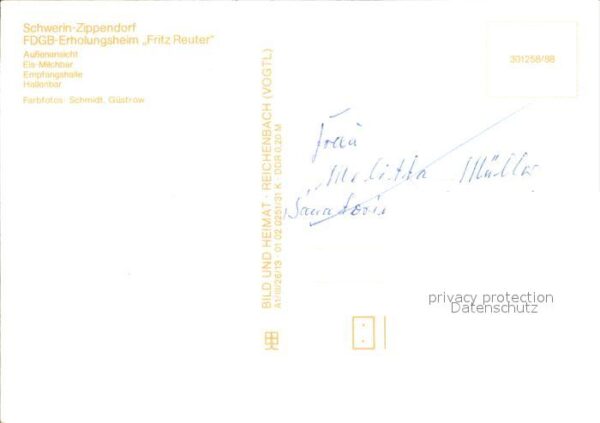 Schwerin-Zippendorf
FDGB-Erholungsheim „Fritz Reuter“
Außenansicht
Eis-Milchbar
Empfangshalle
Hallenbar
Farbfotos: Schmidt, Güstrow
BILD UND HEIMAT · REICHENBACH (VOGTL)
A1/III/26/13 · 01 02 0251/31 K · DDR 0,20 M
301258/88
Frau
Melitta Müller
privacy protection
Datenschutz